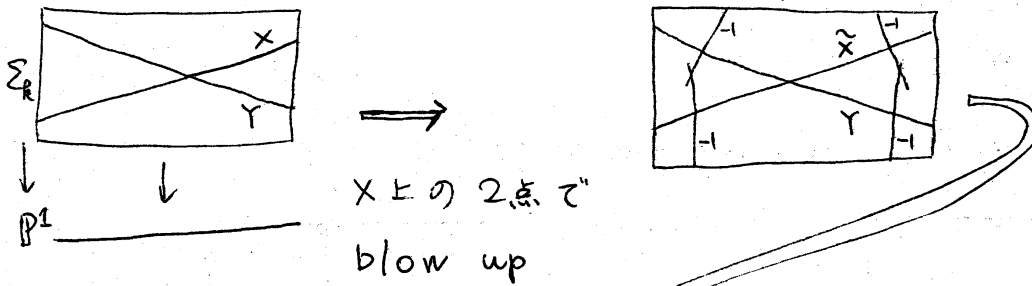 Σk
X
Y
P¹
X上の2点で
blow up
-1
-1
X̃
Y
-1
-1